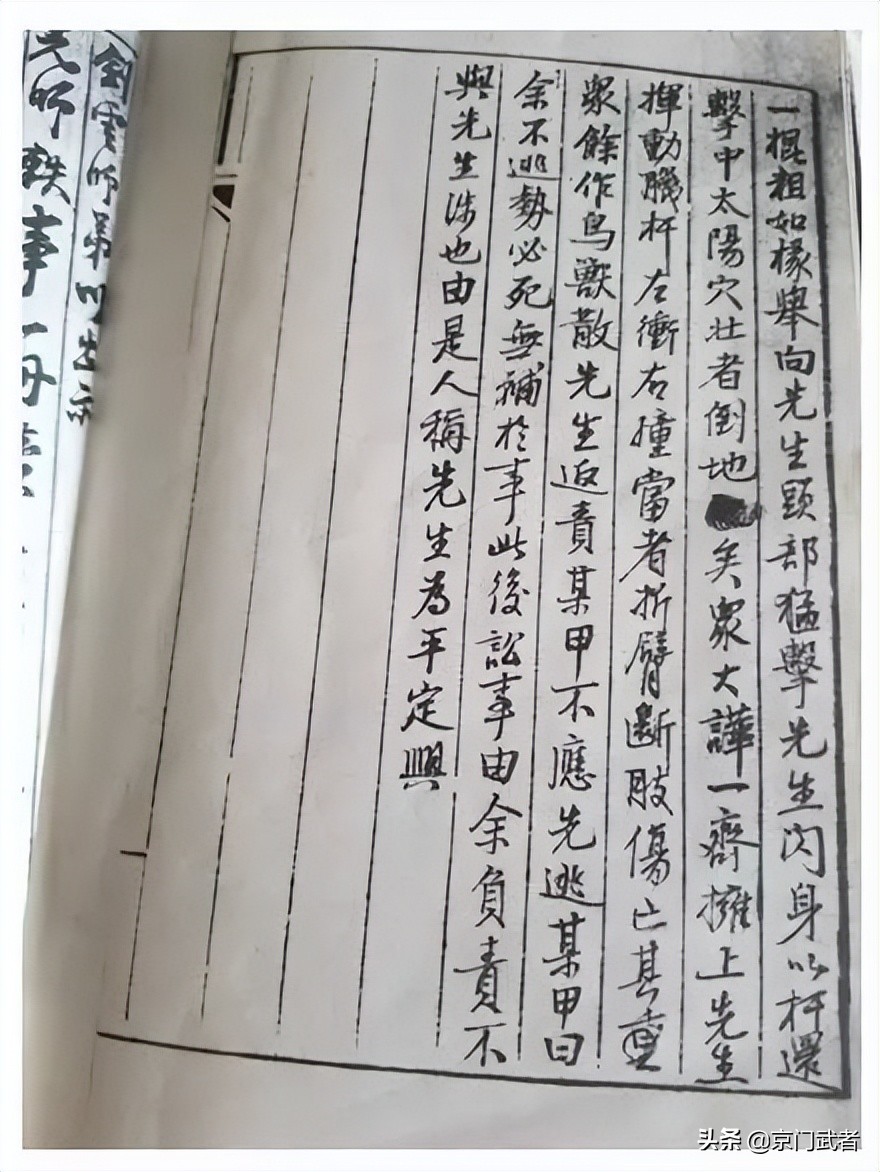 一棍粗如椽舉向先生頭部猛擊先生閃身以杆還
擊中太陽穴壯者倒地矣眾大譁一齊擁上先生
揮動臘杆左衝右撞當者折臂斷肢傷亡甚重
眾餘作鳥獸散先生返責某甲不應先逃某甲曰
余不逃勢必死無補於事此後訟事由余負責不
與先生涉也由是人稱先生為平定興
劍雲師弟以出示
先師軼事一冊
头条 @京门武者